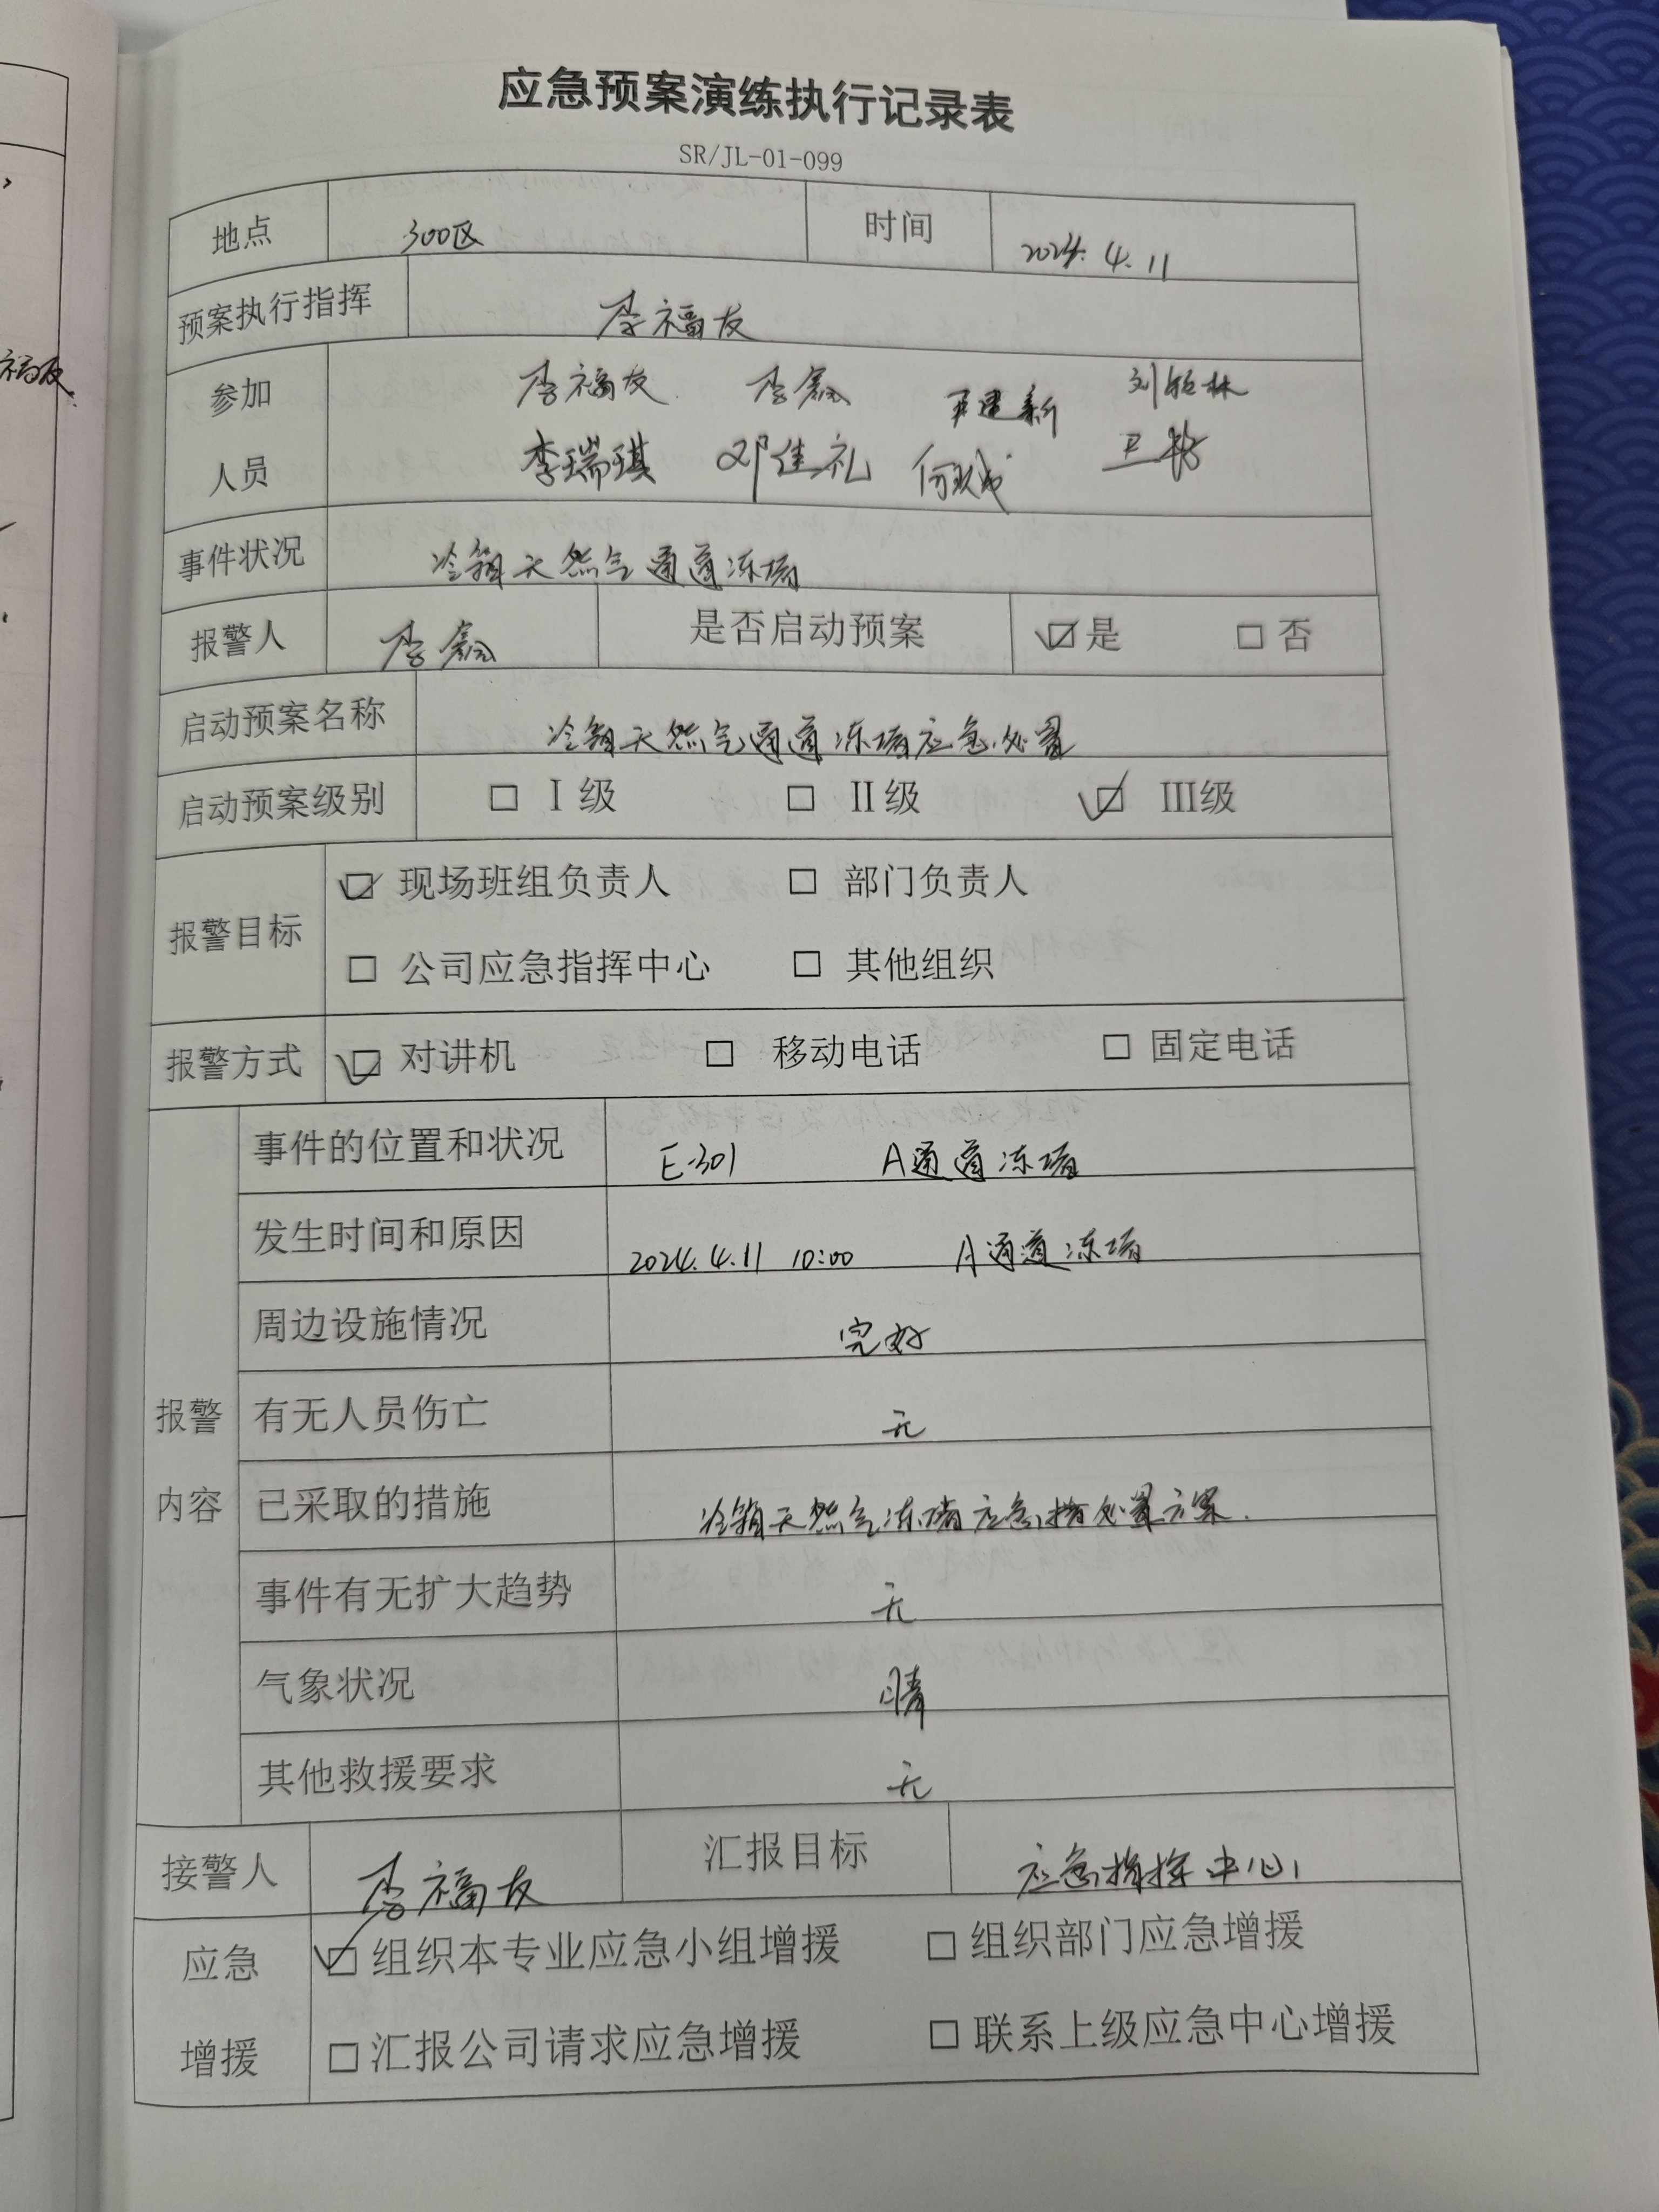 应急预案演练执行记录表
SR/JL-01-099
地点 300区 时间 2024.4.11
预案执行指挥 李福友
参加 李福友 李鑫 尹建新
人员 李瑞琪 邓佳礼
事件状况 冷箱天然气通道冻堵
报警人 李鑫 是否启动预案 ☑是 □否
启动预案名称 冷箱天然气通道冻堵应急处置
启动预案级别 □ Ⅰ级 □ Ⅱ级 ☑ Ⅲ级
报警目标 ☑ 现场班组负责人 □ 部门负责人
□ 公司应急指挥中心 □ 其他组织
报警方式 ☑ 对讲机 □ 移动电话 □ 固定电话
报警内容
事件的位置和状况 E-301 A通道冻堵
发生时间和原因 2024.4.11 10:00 A通道冻堵
周边设施情况 完好
有无人员伤亡 无
已采取的措施 冷箱天然气冻堵应急处置方案.
事件有无扩大趋势 无
气象状况 晴
其他救援要求 无
接警人 李福友 汇报目标 应急指挥中心
应急 ☑组织本专业应急小组增援 □组织部门应急增援
增援 □汇报公司请求应急增援 □联系上级应急中心增援
福友